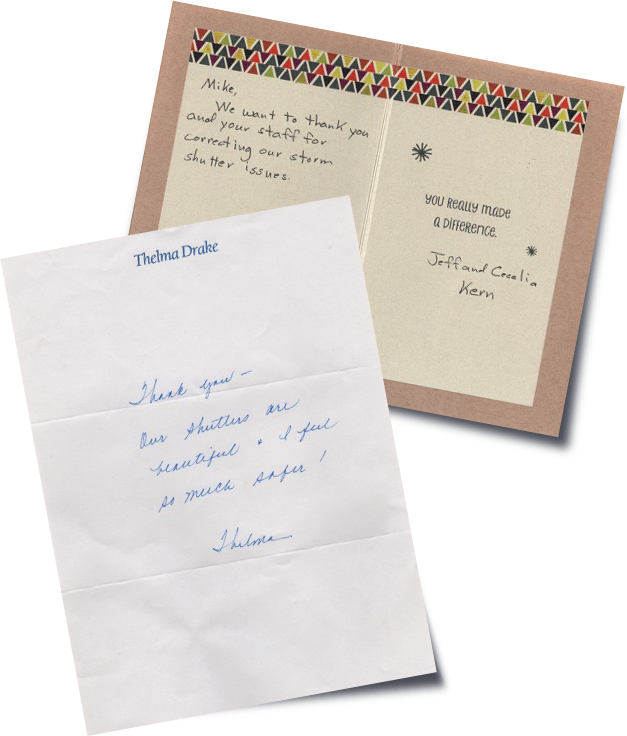 Mike,
We want to thank you
and your staff for
correcting our storm
shutter issues.
you really made
a difference.
Jeff and Cecelia
Kern
Thelma Drake
Thank you –
Our shutters are
beautiful & I feel
so much safer!
Thelma